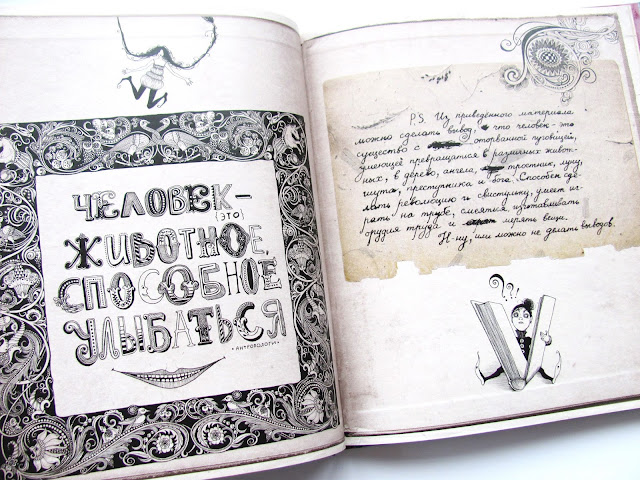 ЧЕЛОВЕК–
(ЭТО)
ЖИВОТНОЕ,
СПОСОБНОЕ
УЛЫБАТЬСЯ
• АНТРОПОЛОГИ •
P.S. Из приведённого материала
можно сделать вывод, что человек - это
существо с оторванной пуговицей,
умеющее превращаться в различных живот-
ных, в дерево, ангела, тростник, луну,
шута, преступника и бога. Способен сде-
лать революцию и свистульку, умеет иг-
рать на трубе, изготавливать
орудия труда и мерять вещи.
Н-ну, или можно не делать выводов.
?!?,